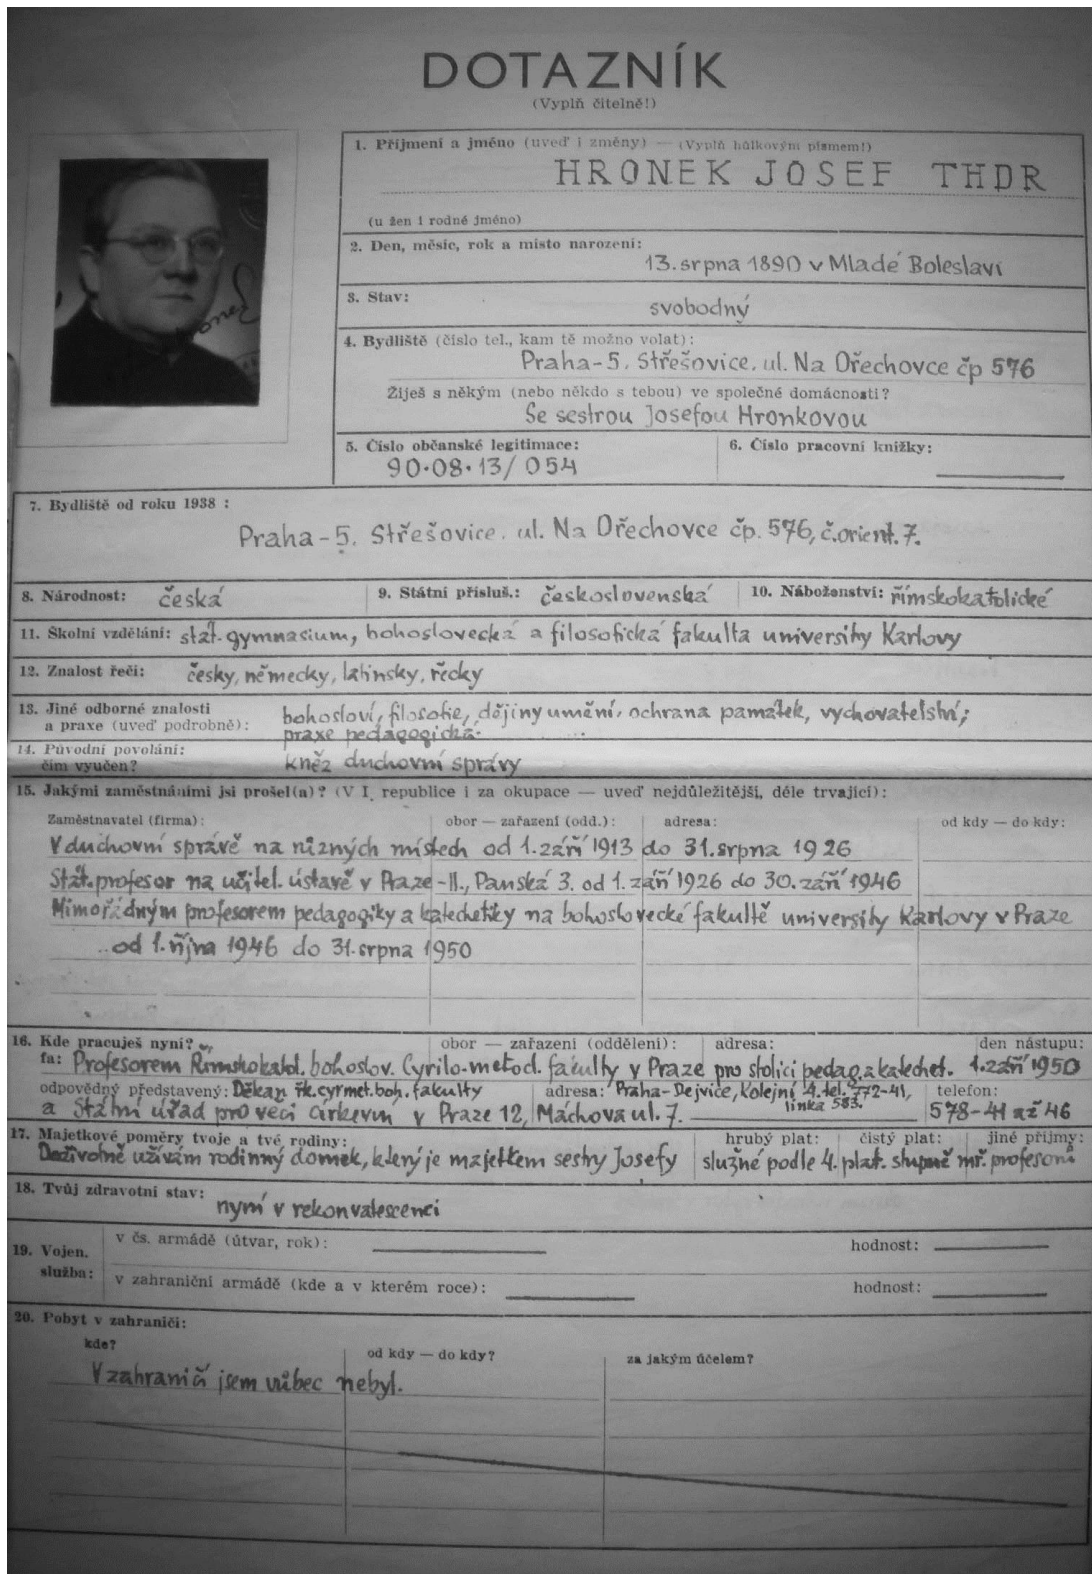 DOTAZNÍK
(Vyplň čitelně!)
1. Příjmení a jméno (uveď i změny) — (Vyplň hůlkovým písmem!)
HRONEK JOSEF THDR
(u žen i rodné jméno)
2. Den, měsíc, rok a místo narození:
13. srpna 1890 v Mladé Boleslavi
3. Stav:
svobodný
4. Bydliště (číslo tel., kam tě možno volat):
Praha-5. Střešovice. ul. Na Ořechovce čp 576
Žiješ s někým (nebo někdo s tebou) ve společné domácnosti?
Se sestrou Josefou Hronkovou
5. Číslo občanské legitimace: 6. Číslo pracovní knížky:
90·08·13/054
7. Bydliště od roku 1938 :
Praha-5. Střešovice. ul. Na Ořechovce čp. 576, č. orient. 7.
8. Národnost: česká 9. Státní přísluš.: československá 10. Náboženství: římskokatolické
11. Školní vzdělání: stát. gymnasium, bohoslovecká a filosofická fakulta university Karlovy
12. Znalost řečí: česky, německy, latinsky, řecky
13. Jiné odborné znalosti bohosloví, filosofie, dějiny umění, ochrana památek, vychovatelství;
a praxe (uveď podrobně): praxe pedagogická.
14. Původní povolání:
čím vyučen? kněz duchovní správy
15. Jakými zaměstnáními jsi prošel(a)? (V I. republice i za okupace — uveď nejdůležitější, déle trvající):
Zaměstnavatel (firma): obor — zařazení (odd.): adresa: od kdy — do kdy:
V duchovní správě na různých místech od 1. září 1913 do 31. srpna 1926
Stát. profesor na učitel. ústavě v Praze-II., Panská 3. od 1. září 1926 do 30. září 1946
Mimořádným profesorem pedagogiky a katechetiky na bohoslovecké fakultě university Karlovy v Praze
od 1. října 1946 do 31. srpna 1950
16. Kde pracuješ nyní? obor — zařazení (oddělení): adresa: den nástupu:
fa: Profesorem Římskokatol. bohoslov. Cyrilo-metod. fakulty v Praze pro stolici pedag. a katechet. 1. září 1950
odpovědný představený: Děkan řk. cyrmet. boh. fakulty adresa: Praha-Dejvice, Kolejní 4. tel. 772-41, telefon:
linka 583.
a Státní úřad pro věci církevní v Praze 12, Máchova ul. 7. 578-41 až 46
17. Majetkové poměry tvoje a tvé rodiny: hrubý plat: čistý plat: jiné příjmy:
Doživotně užívám rodinný domek, který je majetkem sestry Josefy služné podle 4. plat. stupně mř. profesorů
18. Tvůj zdravotní stav:
nyní v rekonvalescenci
19. Vojen. služba: v čs. armádě (útvar, rok): hodnost:
v zahraniční armádě (kde a v kterém roce): hodnost:
20. Pobyt v zahraničí:
kde? od kdy — do kdy? za jakým účelem?
V zahraničí jsem vůbec nebyl.